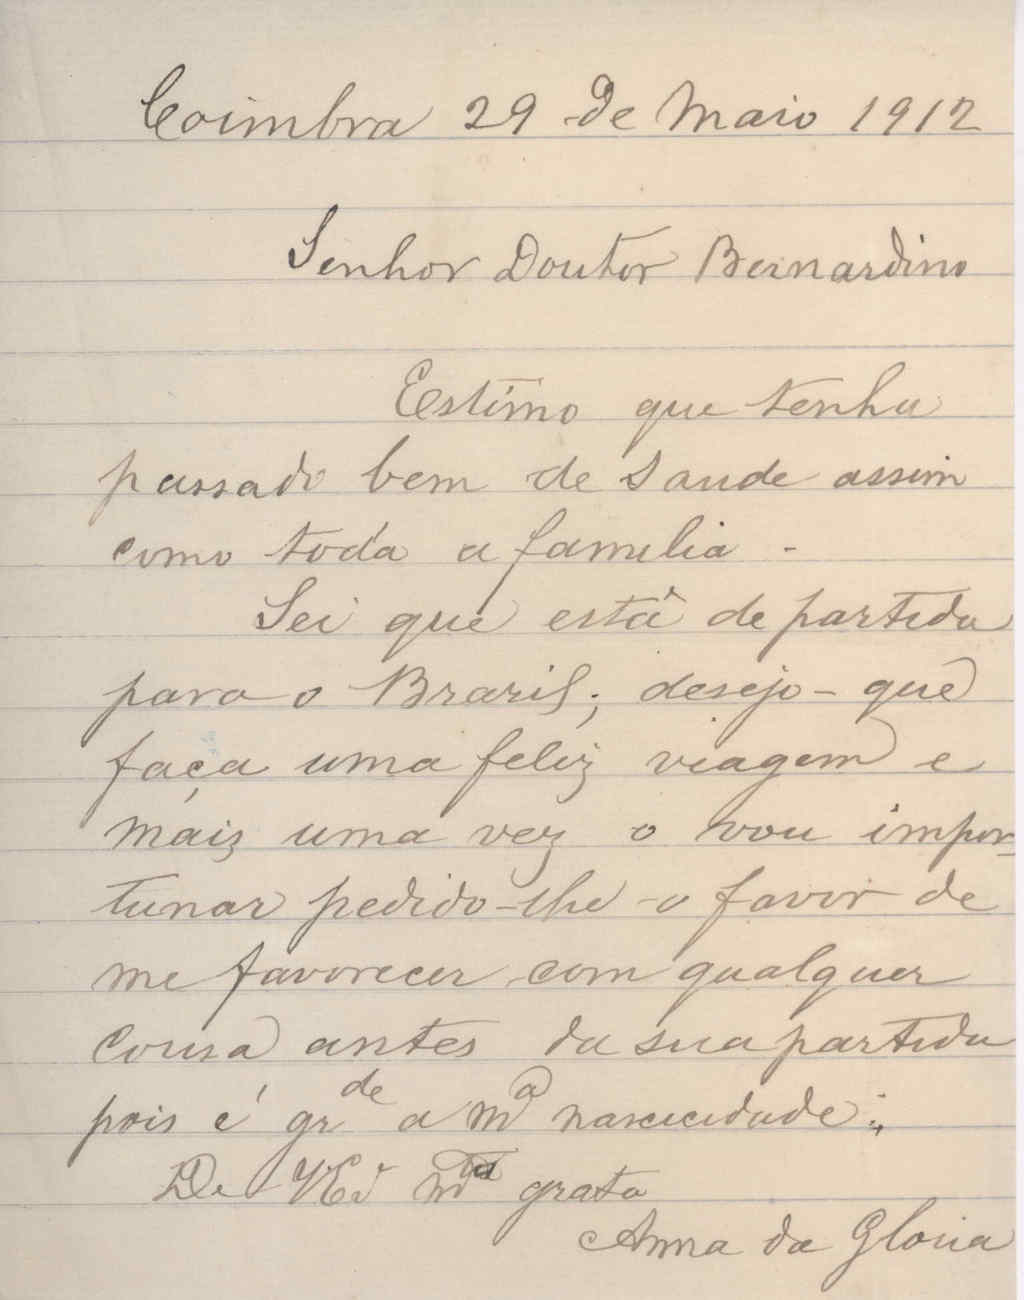 Coimbra 29 de Maio 1912
Senhor Doutor Bernardino
Estimo que tenha
passado bem de saude assim
como toda a familia -
Sei que está de partida
para o Brazil; desejo-que
faça uma feliz viagem e
máiz uma vez o vou impor-
tunar pedido-lhe o favor de
me favorecer com qualquer
cousa antes da sua partida
pois é grde a ma nascecidade.
De V Ea mto grata
Anna da Gloria